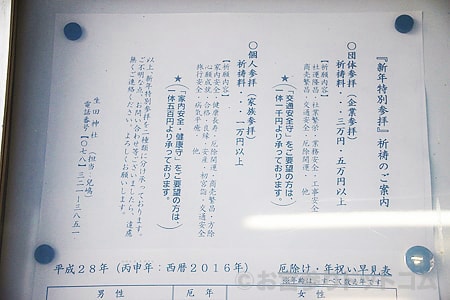 『新年特別参拝』祈祷のご案内
◎団体参拝(企業参拝)
祈祷料・・・三万円・五万円以上
【祈願内容】
社運隆昌・社業繁栄・業務安全・工事安全
商売繁昌・交通安全・厄除開運・他
★「交通安全守」をご要望の方は、
(一体一千円より承っております。)
◎個人参拝(家族参拝)
祈祷料・・・一万円以上
【祈願内容】
家内安全・健康長寿・厄除開運・商売繁昌・方除
心願成就・合格・良縁・安産・初宮詣・交通安全
旅行安全・病気平癒・他
★「家内安全・健康守」をご要望の方は、
(一体五百円より承っております。)
以上『新年特別参拝』を二種類に分け承っております。
ご不明な点、お問い合わせ等ございましたら、遠慮
無くご連絡ください。よろしくお願いします。
生田神社(担当・児嶋)
電話番号【〇七八‐三二一‐三八五一】
平成28年(丙申年:西暦2016年) 厄除け・年祝い早見表
※年齢は、すべて数え年
男性 厄年 女性